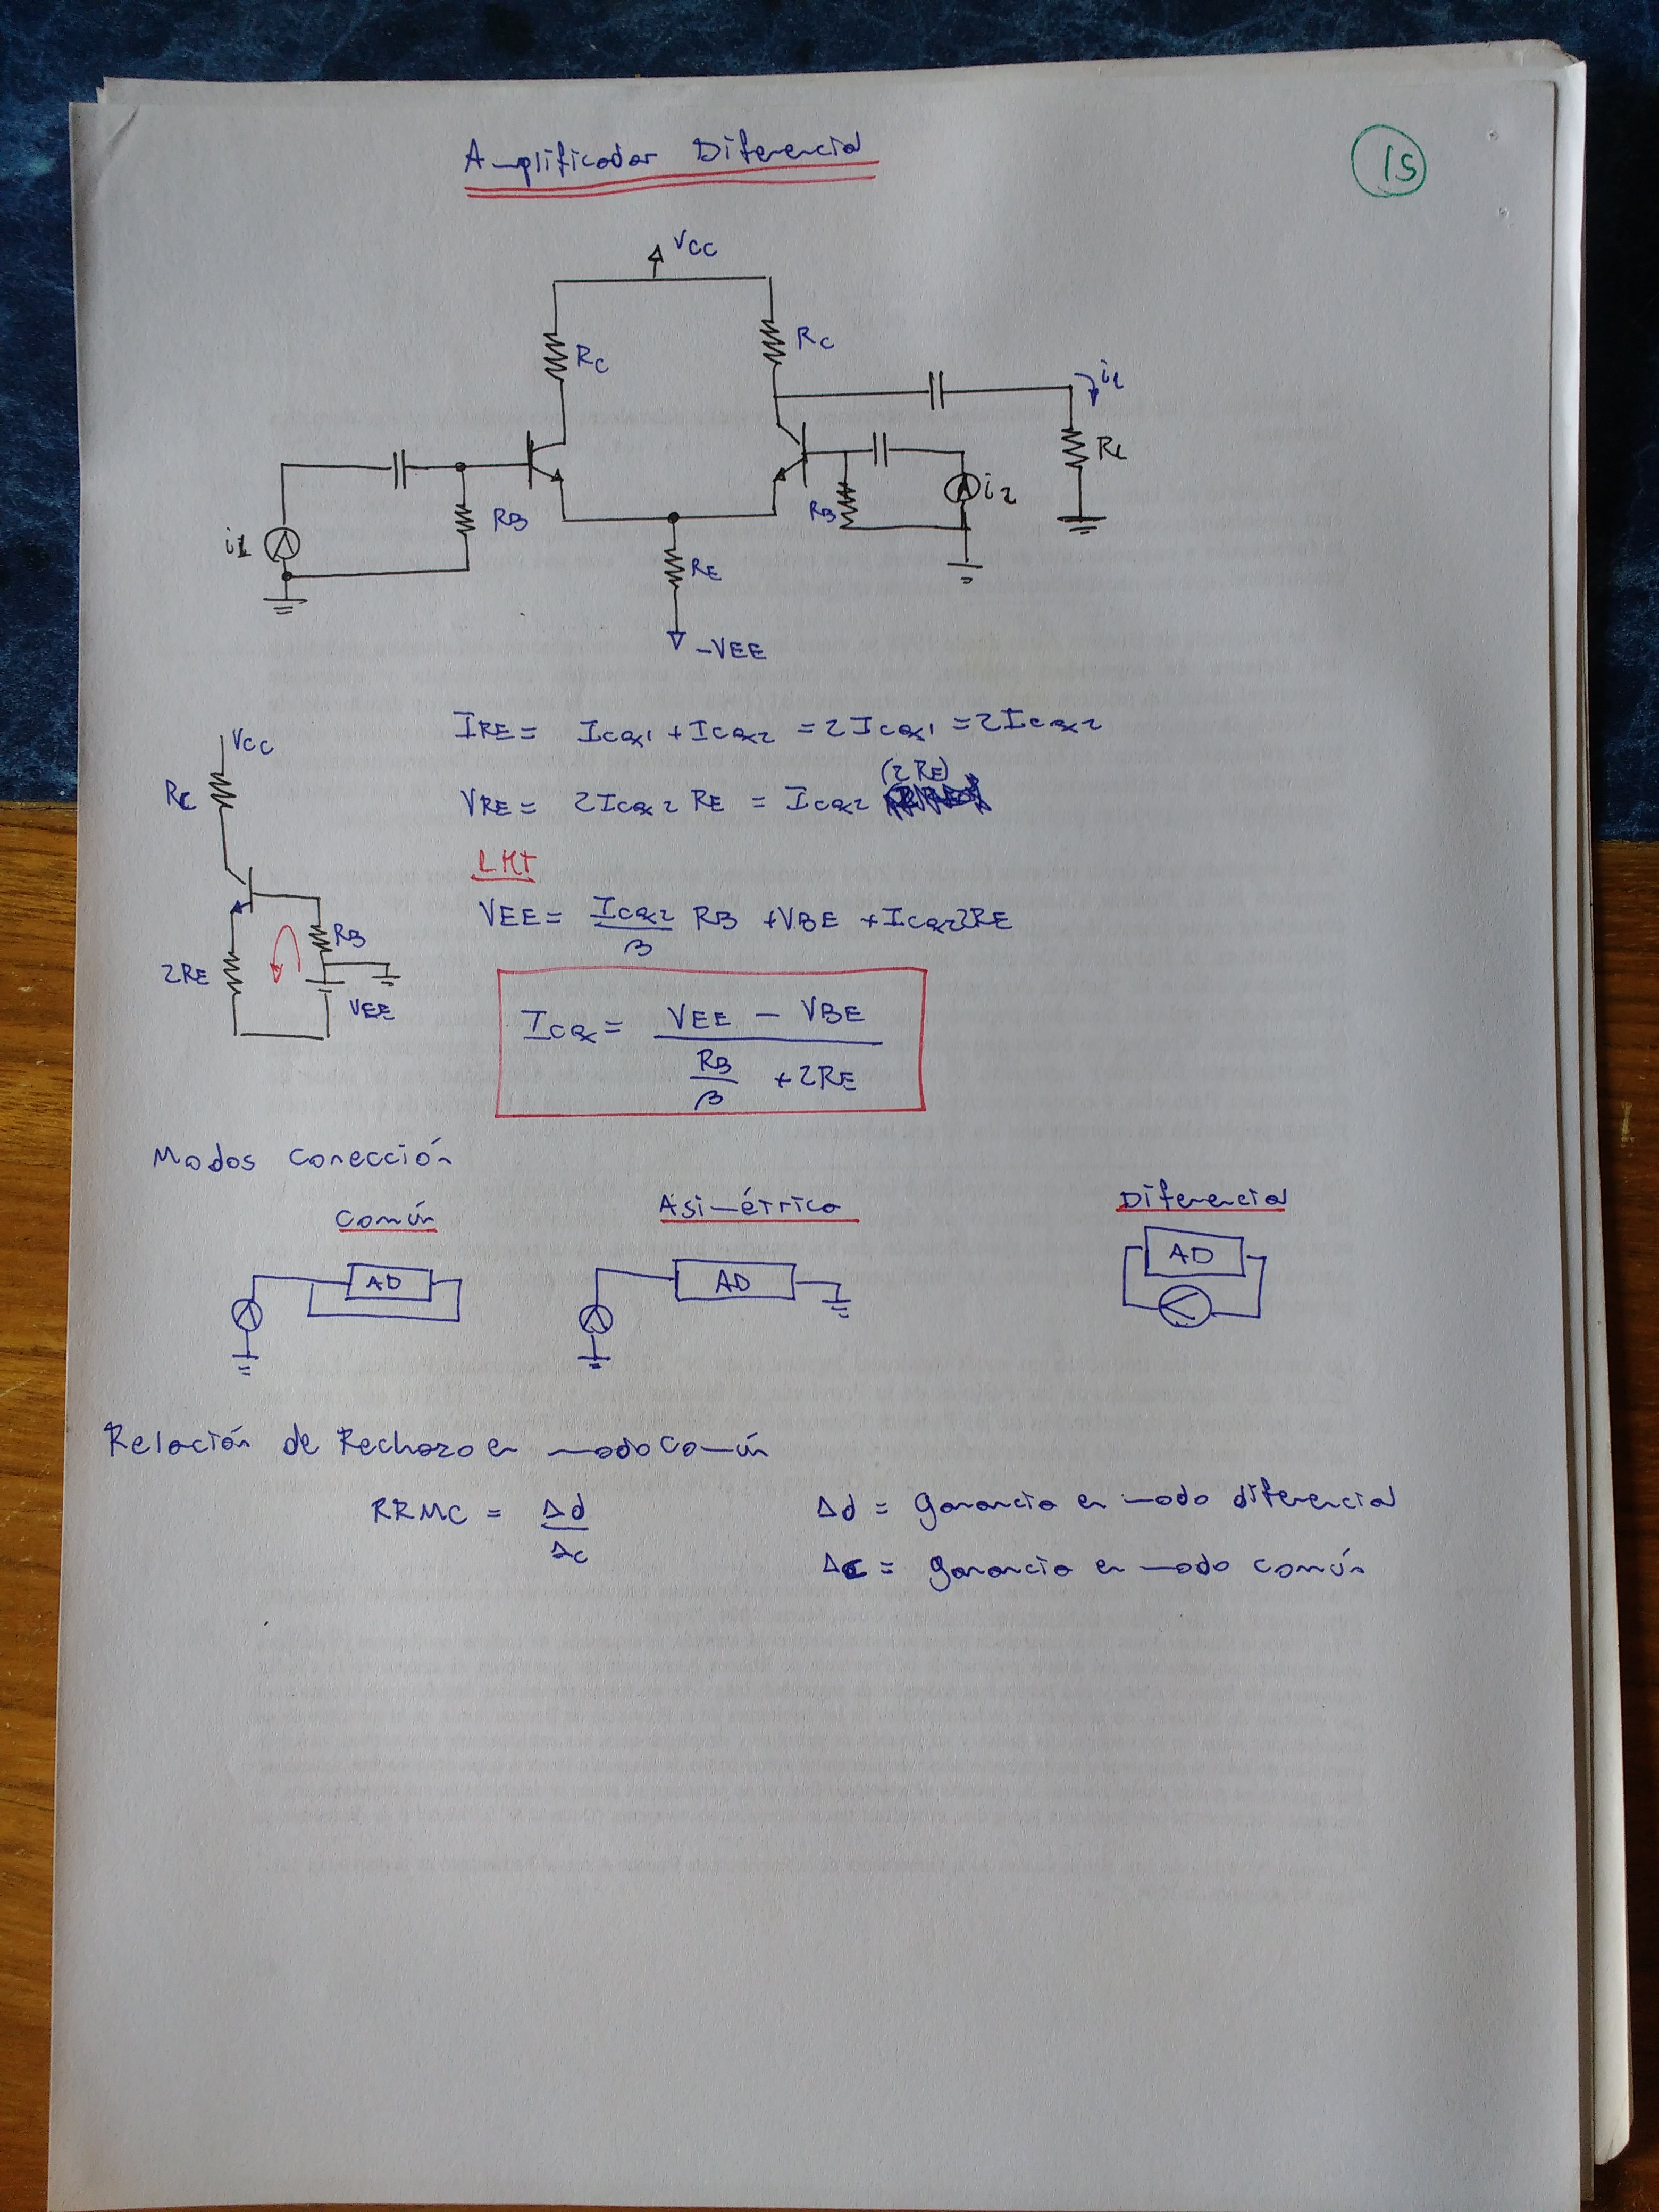 Amplificador Diferencial
15
VCC
RC
RC
iL
RL
i1
RB
RB
i2
RE
-VEE
IRE = ICQ1 + ICQ2 = 2ICQ1 = 2ICQ2
VCC
RC
(2RE)
VRE = 2ICQ2 RE = ICQ2
LKT
VEE = ICQ2/β RB + VBE + ICQ2 2RE
RB
2RE
VEE
ICQ = (VEE - VBE) / (RB/β + 2RE)
Modos Conección
Común
Asimétrico
Diferencial
AD
AD
AD
Relación de Rechazo en modo común
RRMC = Δd/Δc
Δd = ganancia en modo diferencial
Δc = ganancia en modo común